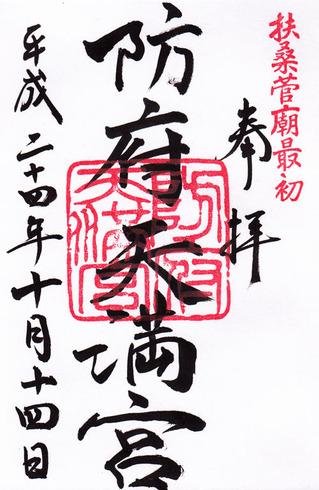 扶桑菅廟最初
奉拝
防府天満宮
防府天満宮
平成二十四年十月十四日